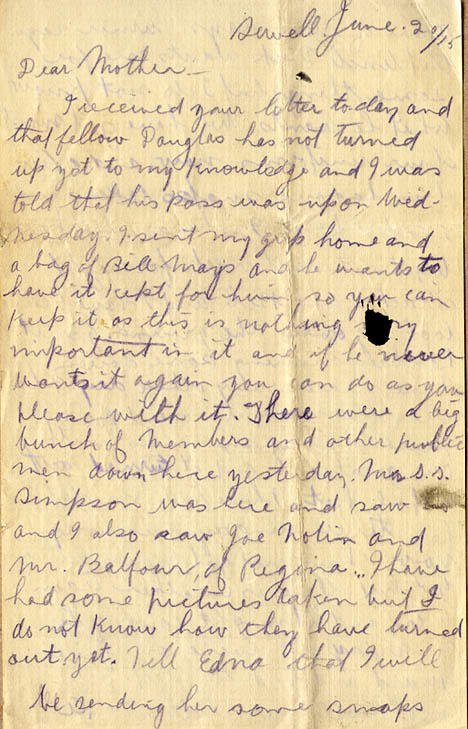 Sewell June. 20/15
Dear Mother—
I received your letter today and
that fellow Douglas has not turned
up yet to my knowledge and I was
told that his pass was up on Wed-
nesday. I sent my grip home and
a bag of Bill Mays and he wants to
have it kept for him so you can
keep it as this is nothing very
important in it and if he never
wants it again you can do as you
please with it. There were a big
bunch of Members and other public
men down here yesterday. S.
Simpson was here and saw
and I also saw Joe Nolin and
Mr. Balfour, of Regina.. I have
had some pictures taken but I
do not know how they have turned
out yet. Tell Edna that I will
be sending her some snaps